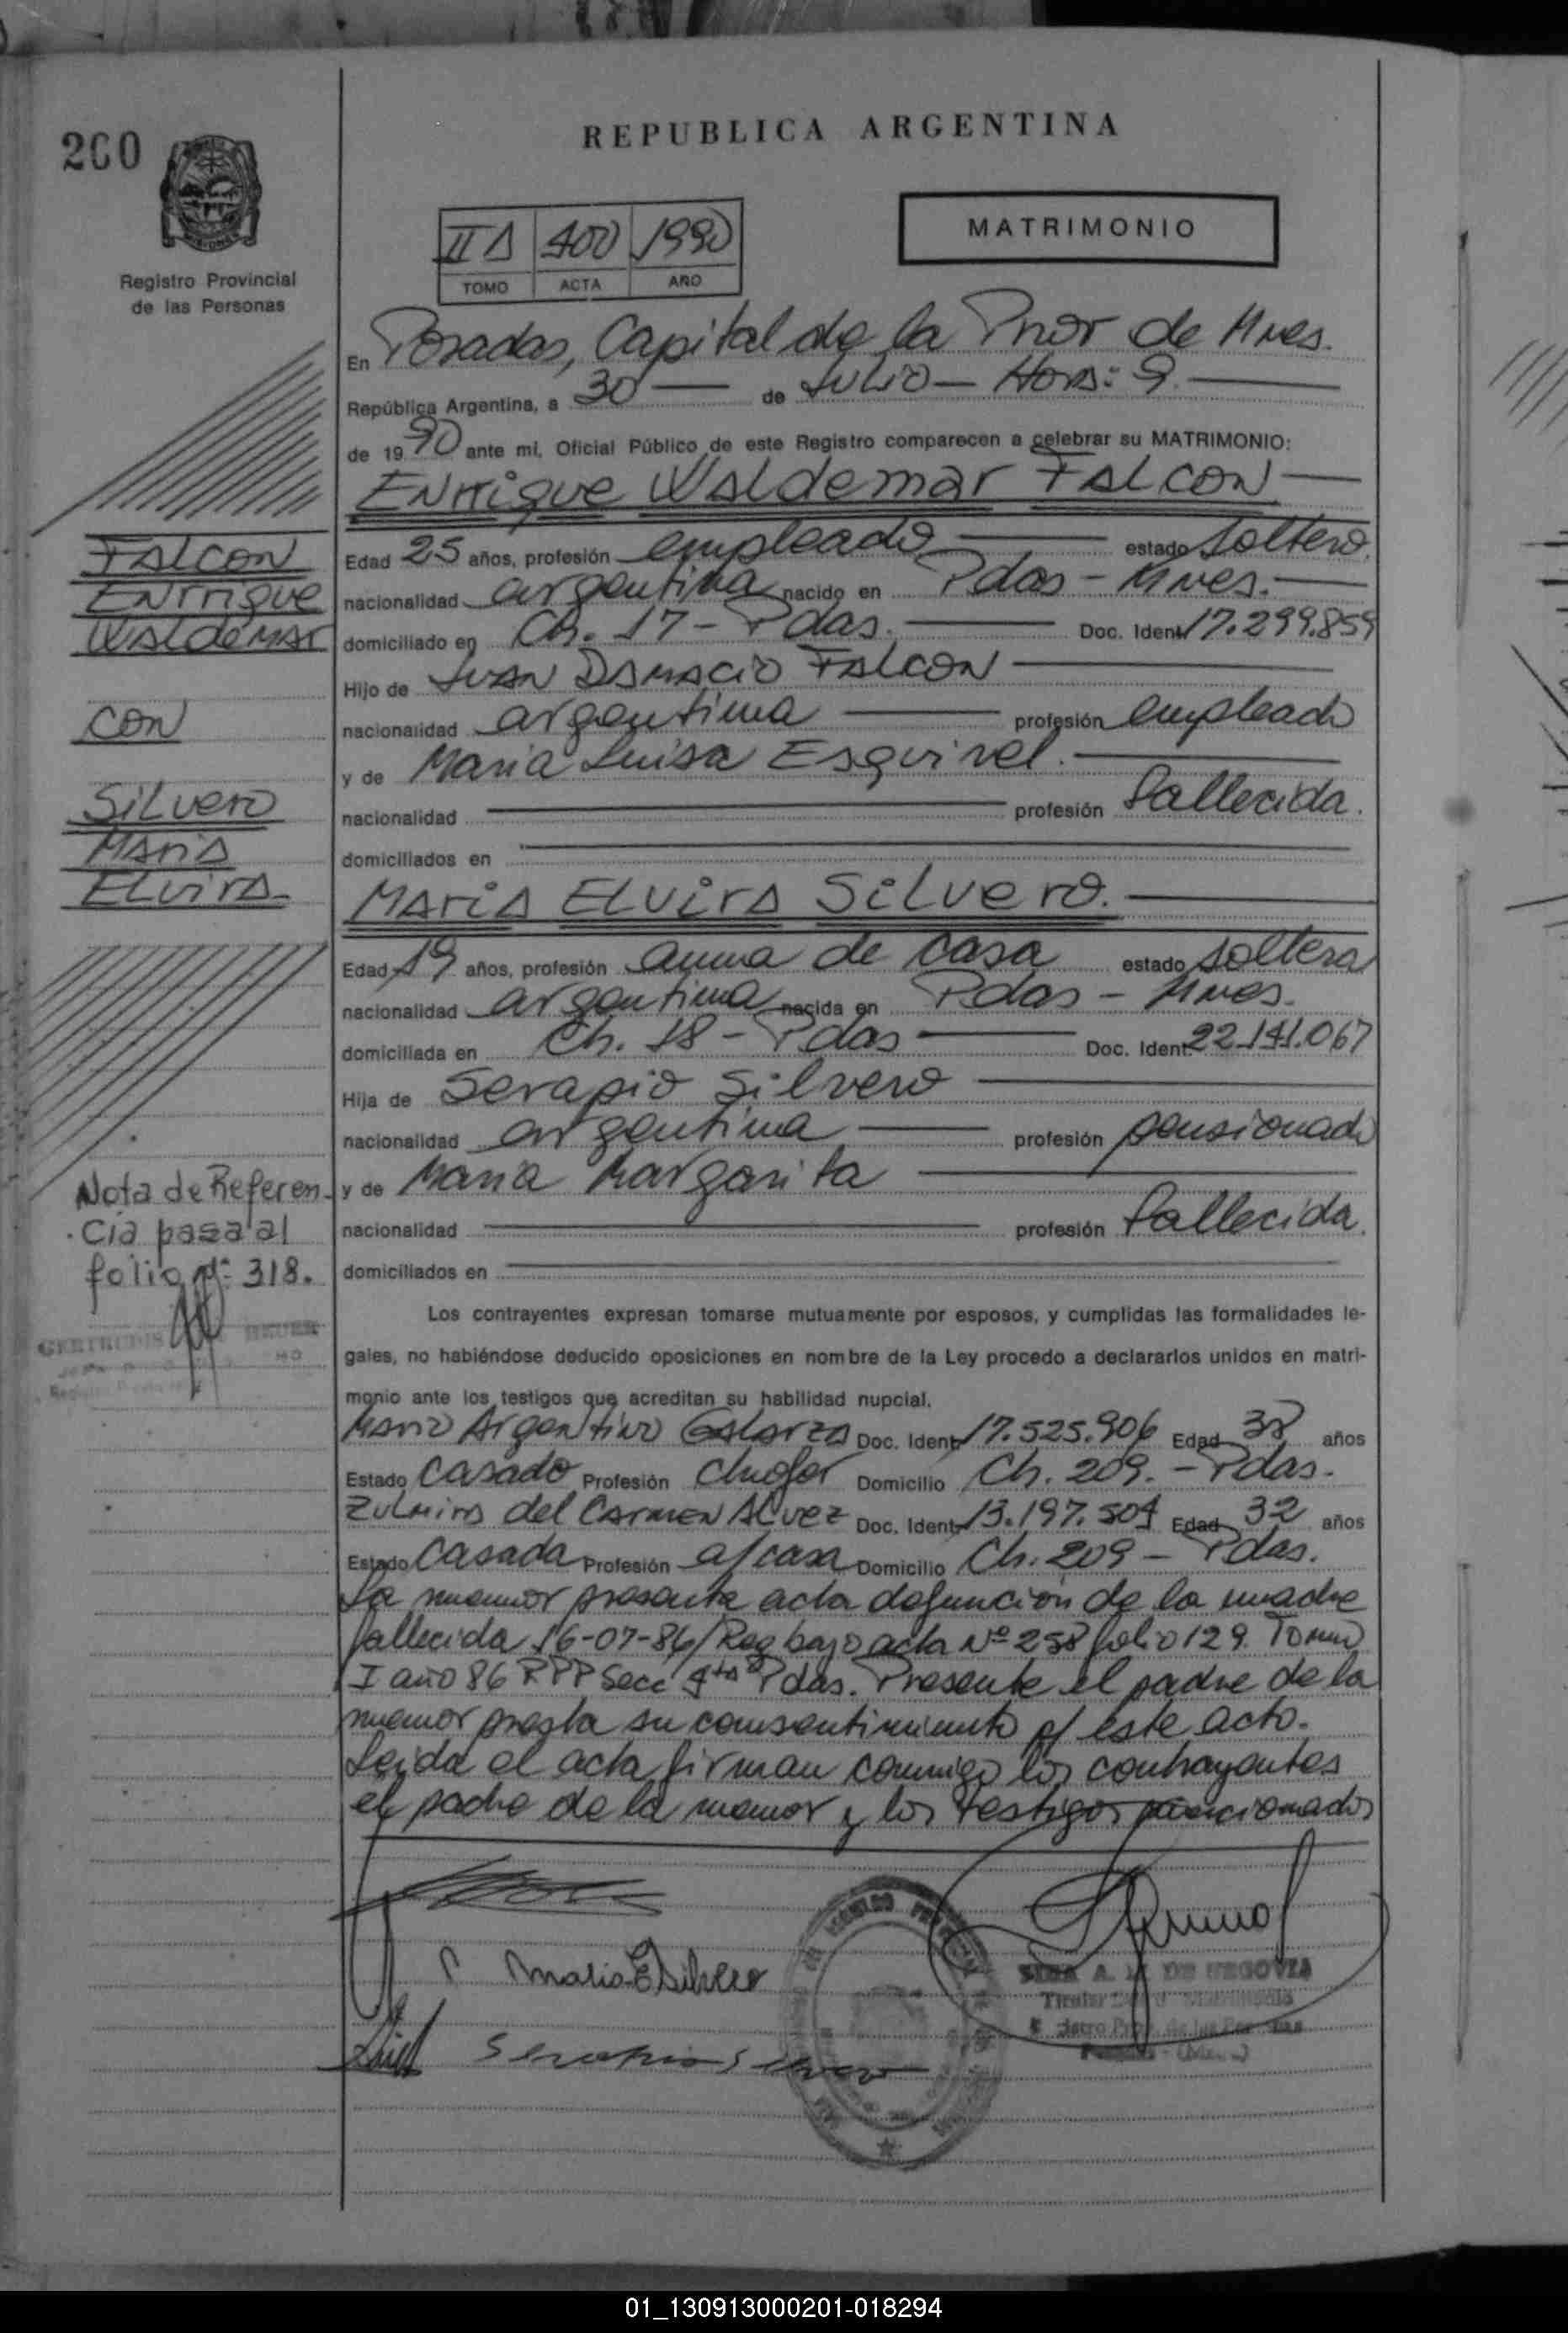 260
REPUBLICA ARGENTINA
MATRIMONIO
II A 400 1990
TOMO ACTA AÑO
Registro Provincial
de las Personas
En Posadas, Capital de la Pnor de Mnes.
República Argentina, a 30 de Julio - Hora: 9.
de 1990 ante mi, Oficial Público de este Registro comparecen a celebrar su MATRIMONIO:
Enrrique Waldemar Falcon
FALCON
Enrrique
Waldemar
CON
Silvero
Maria
Elvira
Edad 25 años, profesión empleado estado soltero.
nacionalidad argentina nacido en Pdas - Mnes.
domiciliado en Ch. 17 - Pdas. Doc. Ident. 17.299.859
Hijo de Juan Damacio Falcon
nacionalidad argentina profesión empleado
y de Maria Luisa Esquivel.
nacionalidad profesión fallecida.
domiciliados en
Maria Elvira Silvero.
Edad 19 años, profesión ama de casa estado soltera
nacionalidad argentina nacida en Pdas - Mnes.
domiciliada en Ch. 18 - Pdas Doc. Ident. 22.141.067
Hija de Serapio Silvero
nacionalidad argentina profesión pensionado
y de Maria Margarita
nacionalidad profesión fallecida.
domiciliados en
Nota de Referen-
cia pasa al
folio nº: 318.
GERTRUDIS
Los contrayentes expresan tomarse mutuamente por esposos, y cumplidas las formalidades le-
gales, no habiéndose deducido oposiciones en nombre de la Ley procedo a declararlos unidos en matri-
monio ante los testigos que acreditan su habilidad nupcial.
Mario Argentino Galarza Doc. Ident. 17.525.906 Edad 38 años
Estado Casado Profesión chofor Domicilio Ch. 209. - Pdas.
Zulmira del Carmen Alvez Doc. Ident. 13.197.504 Edad 32 años
Estado Casada Profesión a/casa Domicilio Ch. 209 - Pdas.
La menor presenta acta defunción de la madre
fallecida 16-07-86/Reg bajo acta Nº 258 folio 129. Tomo
I año 86 RPP Secc 4ta Pdas. Presente el padre de la
menor presta su consentimiento p/ este acto.
Leida el acta firman conmigo los contrayentes
el padre de la menor y los testigos mencionados
Maria E Silvero
Serapio Silvero
A. DE SEGOVIA
Titular
01_130913000201-018294